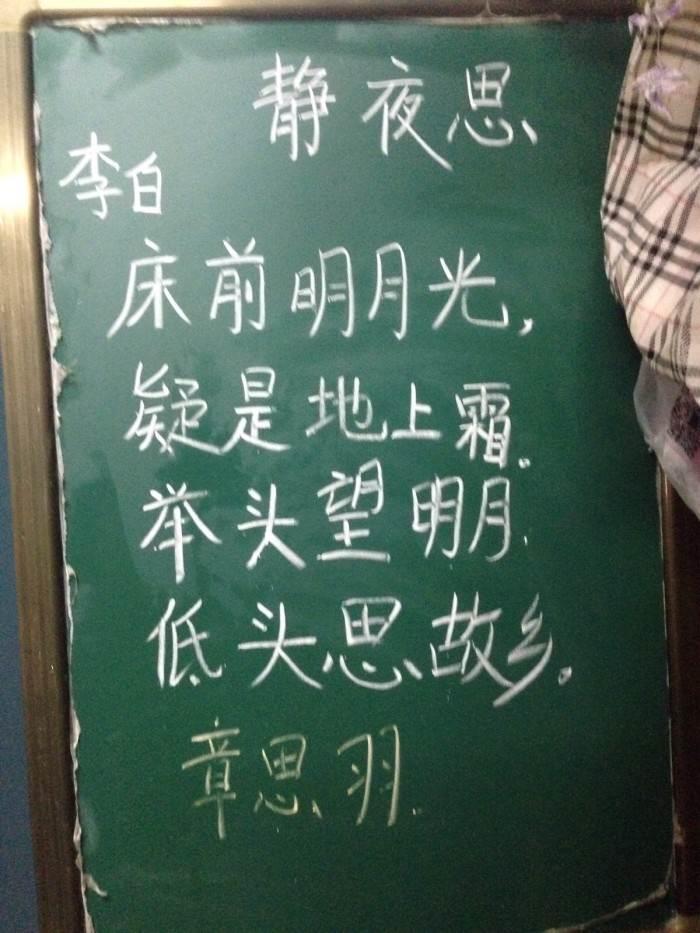 静夜思
李白
床前明月光，
疑是地上霜。
举头望明月.
低头思故乡。
章思羽.